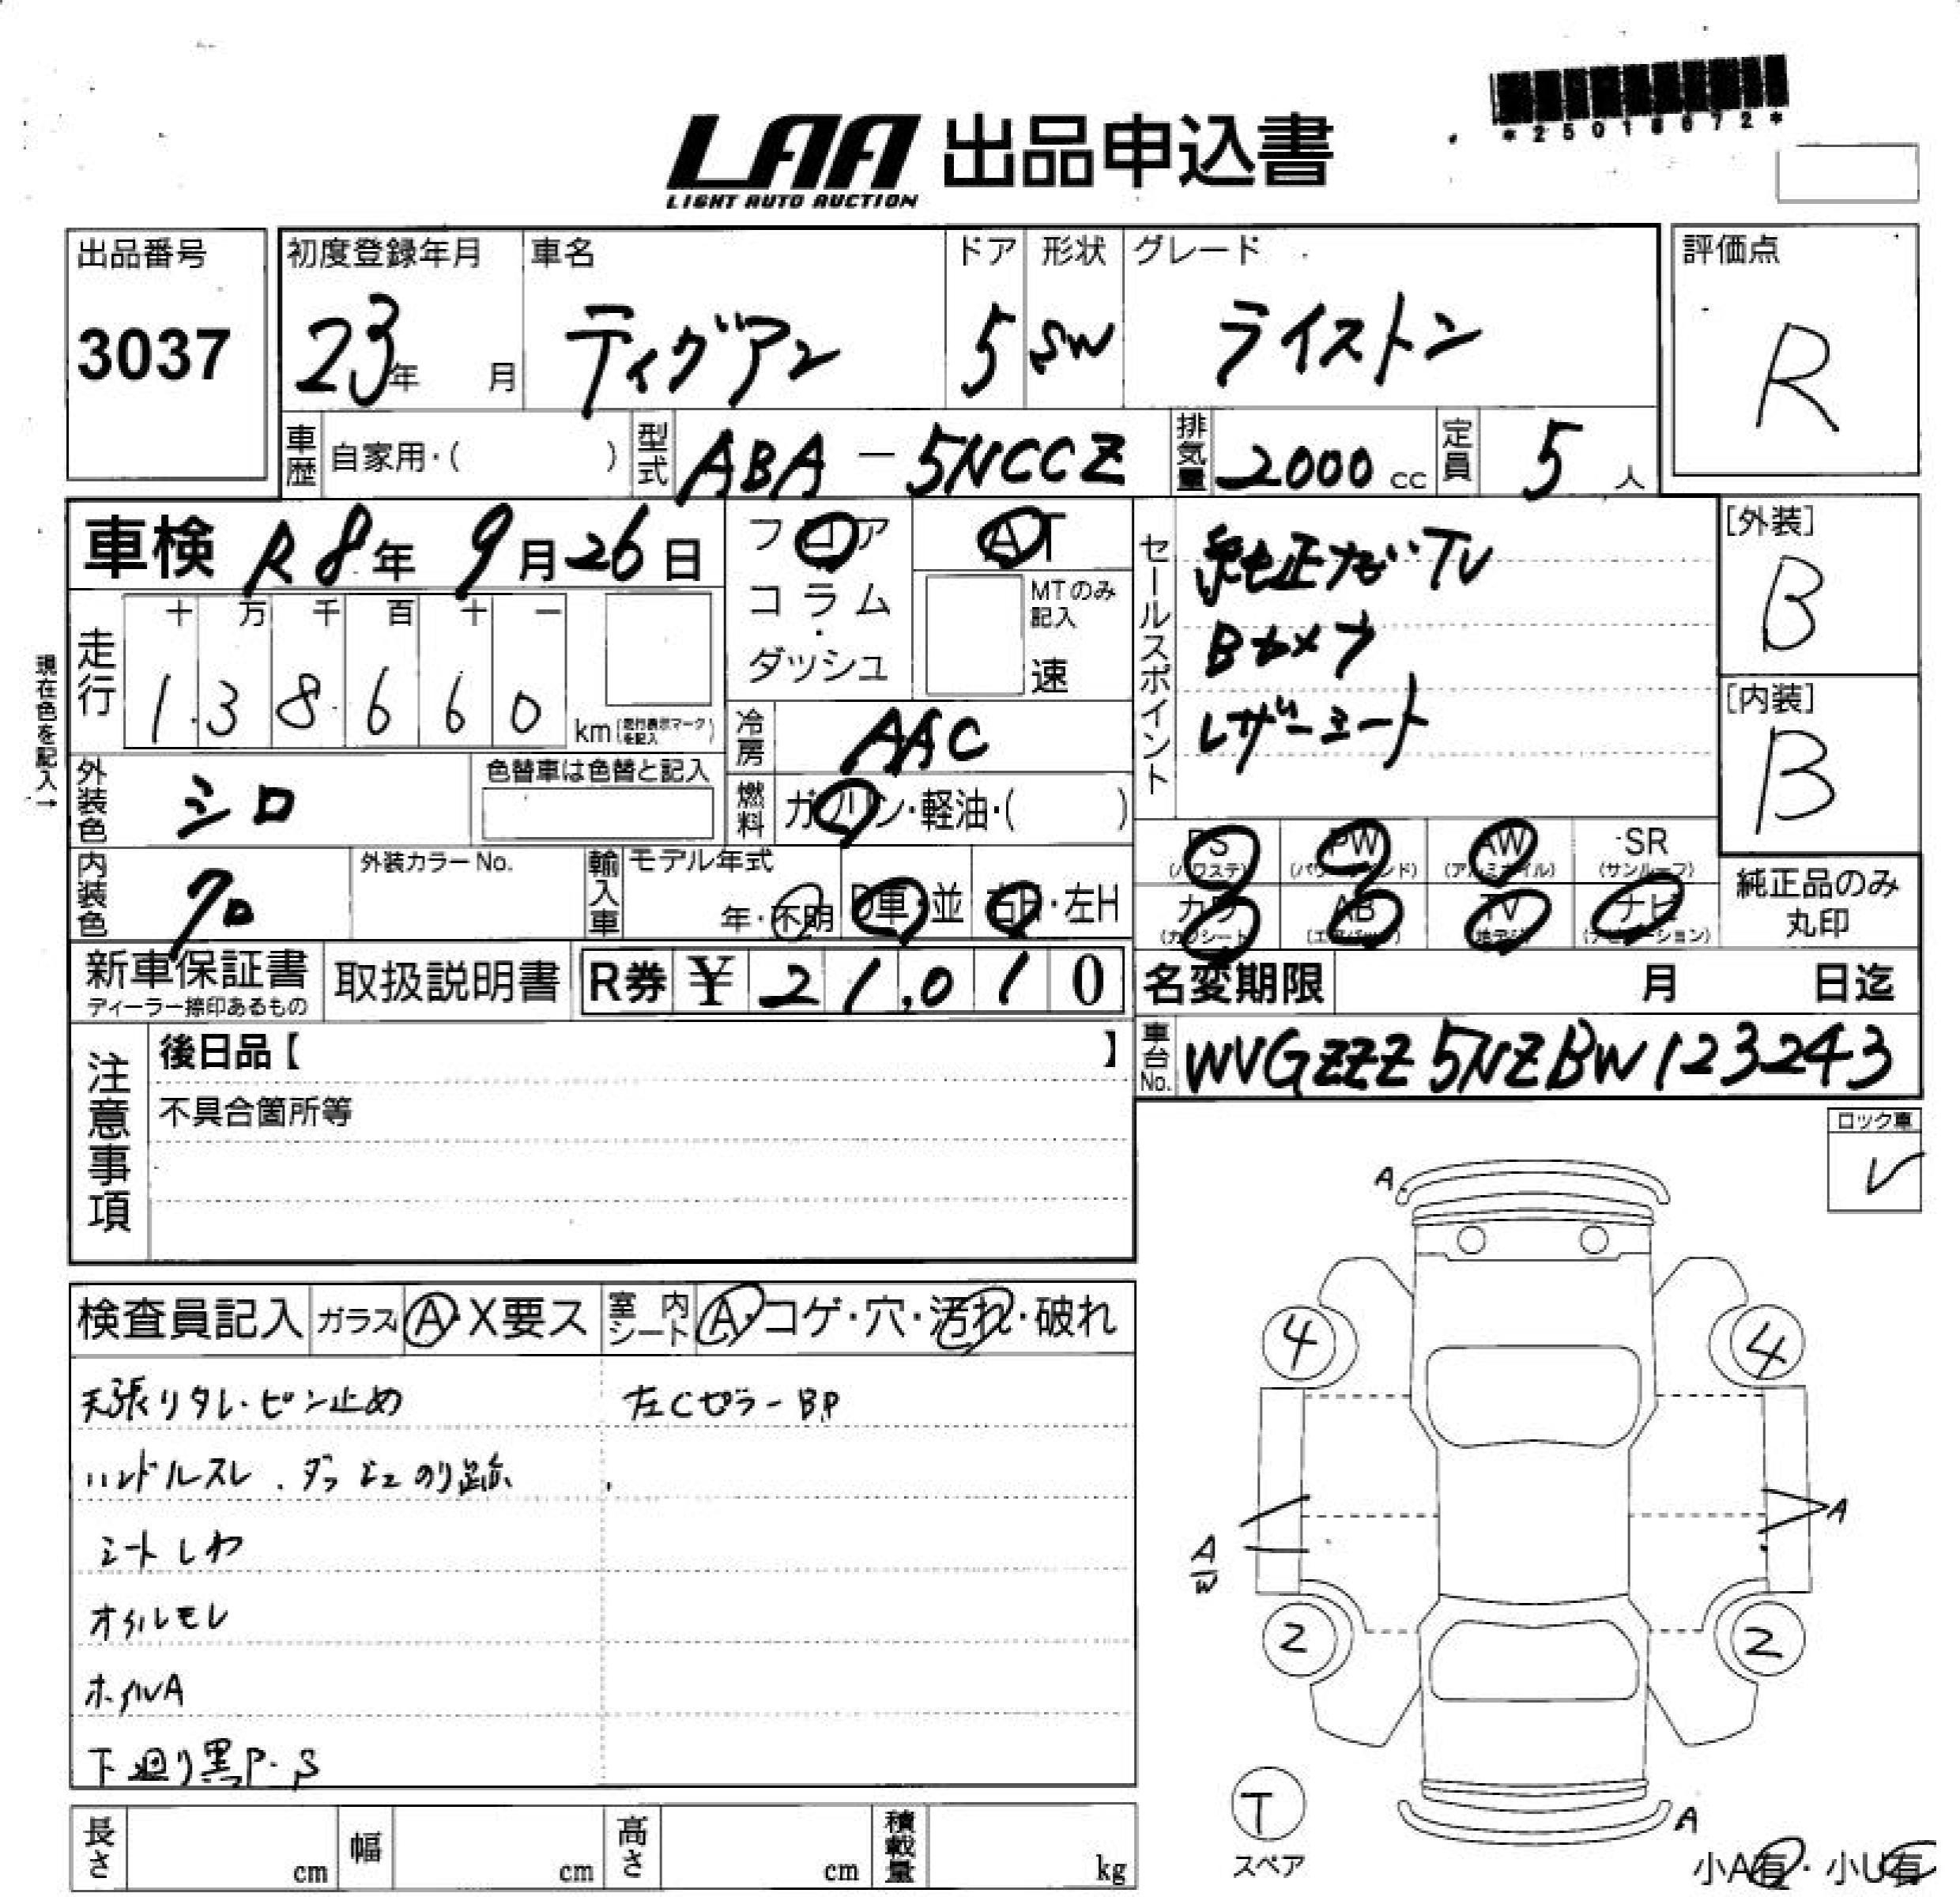 *25018672*
LAA 出品申込書
LIGHT AUTO AUCTION
出品番号 初度登録年月 車名 ドア 形状 グレード 評価点
3037 23年 月 ティグアン 5 SW ライストン R
車歴 自家用・( ) 型式 ABA-5NCCZ 排気量 2000 cc 定員 5 人
車検 R8年 9月26日 フロア AT セールスポイント 純正ナビ・TV [外装] B
コラム・ダッシュ MTのみ記入 速 Bカメラ
現在色を記入→
走行 十 万 千 百 十 一
1 3 8 6 6 0 km (走行表示マークを記入) レザーシート [内装] B
冷房 AAC
外装色 シロ 色替車は色替と記入 燃料 ガソリン・軽油・( )
PS (パワステ) PW (パワーウインド) AW (アルミホイル) SR (サンルーフ)
内装色 クロ 外装カラーNo. 輸入車 モデル年式 年・不明 D車・並 右H・左H
カワ (カワシート) AB (エアバッグ) TV (地デジ) ナビ (ナビゲーション) 純正品のみ丸印
新車保証書 ディーラー捺印あるもの 取扱説明書 R券 ¥ 21,010 名変期限 月 日迄
注意事項 後日品【 】 車台No. WVGZZZ5NZBW123243
不具合箇所等
ロック車 レ
検査員記入 ガラス A・X要ス 室内シート A・コゲ・穴・汚れ・破れ
天張りタレ・ピン止め 左Cピラー BP
ハンドルスレ.ダッシュのり跡
シートしわ
オイルモレ
ホイルA
下廻り黒P・S
A
4 4
A
A
W
2 2
T
スペア
A
小A有・小U有
長さ cm 幅 cm 高さ cm 積載量 kg